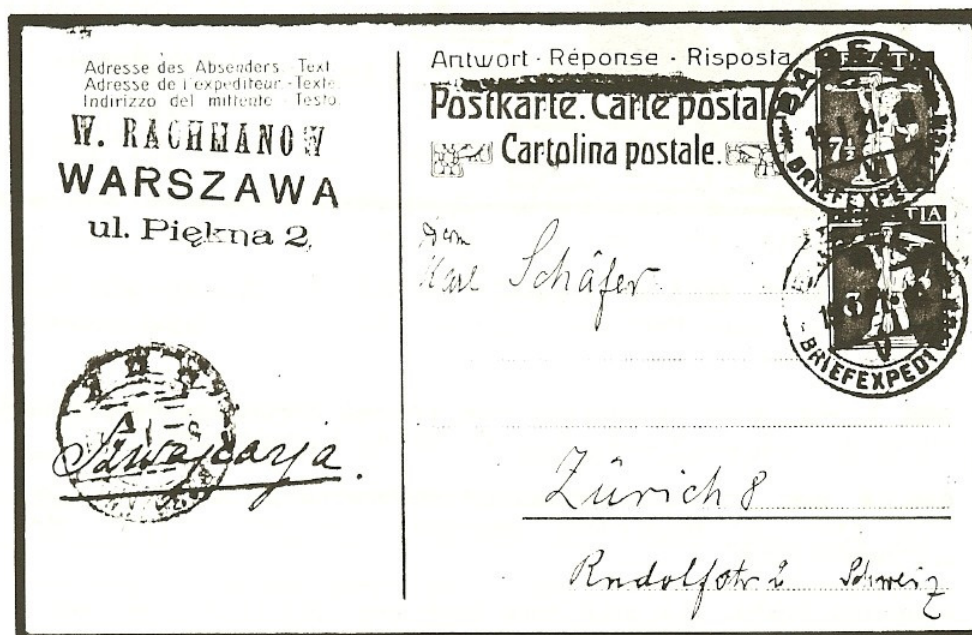 Adresse des Absenders. - Text
Adresse de l'expéditeur - Texte.
Indirizzo del mittente - Testo.
W. RACHMANOW
WARSZAWA
ul. Piękna 2.
Szwajcarja.
Antwort - Réponse - Risposta
Postkarte. Carte postale
Cartolina postale.
BASEL
BRIEFEXPED
7½
HELVETIA
3
BRIEFEXPEDI
Herrn
Karl Schäfer
Zürich 8
Rudolfstr 2 Schweiz